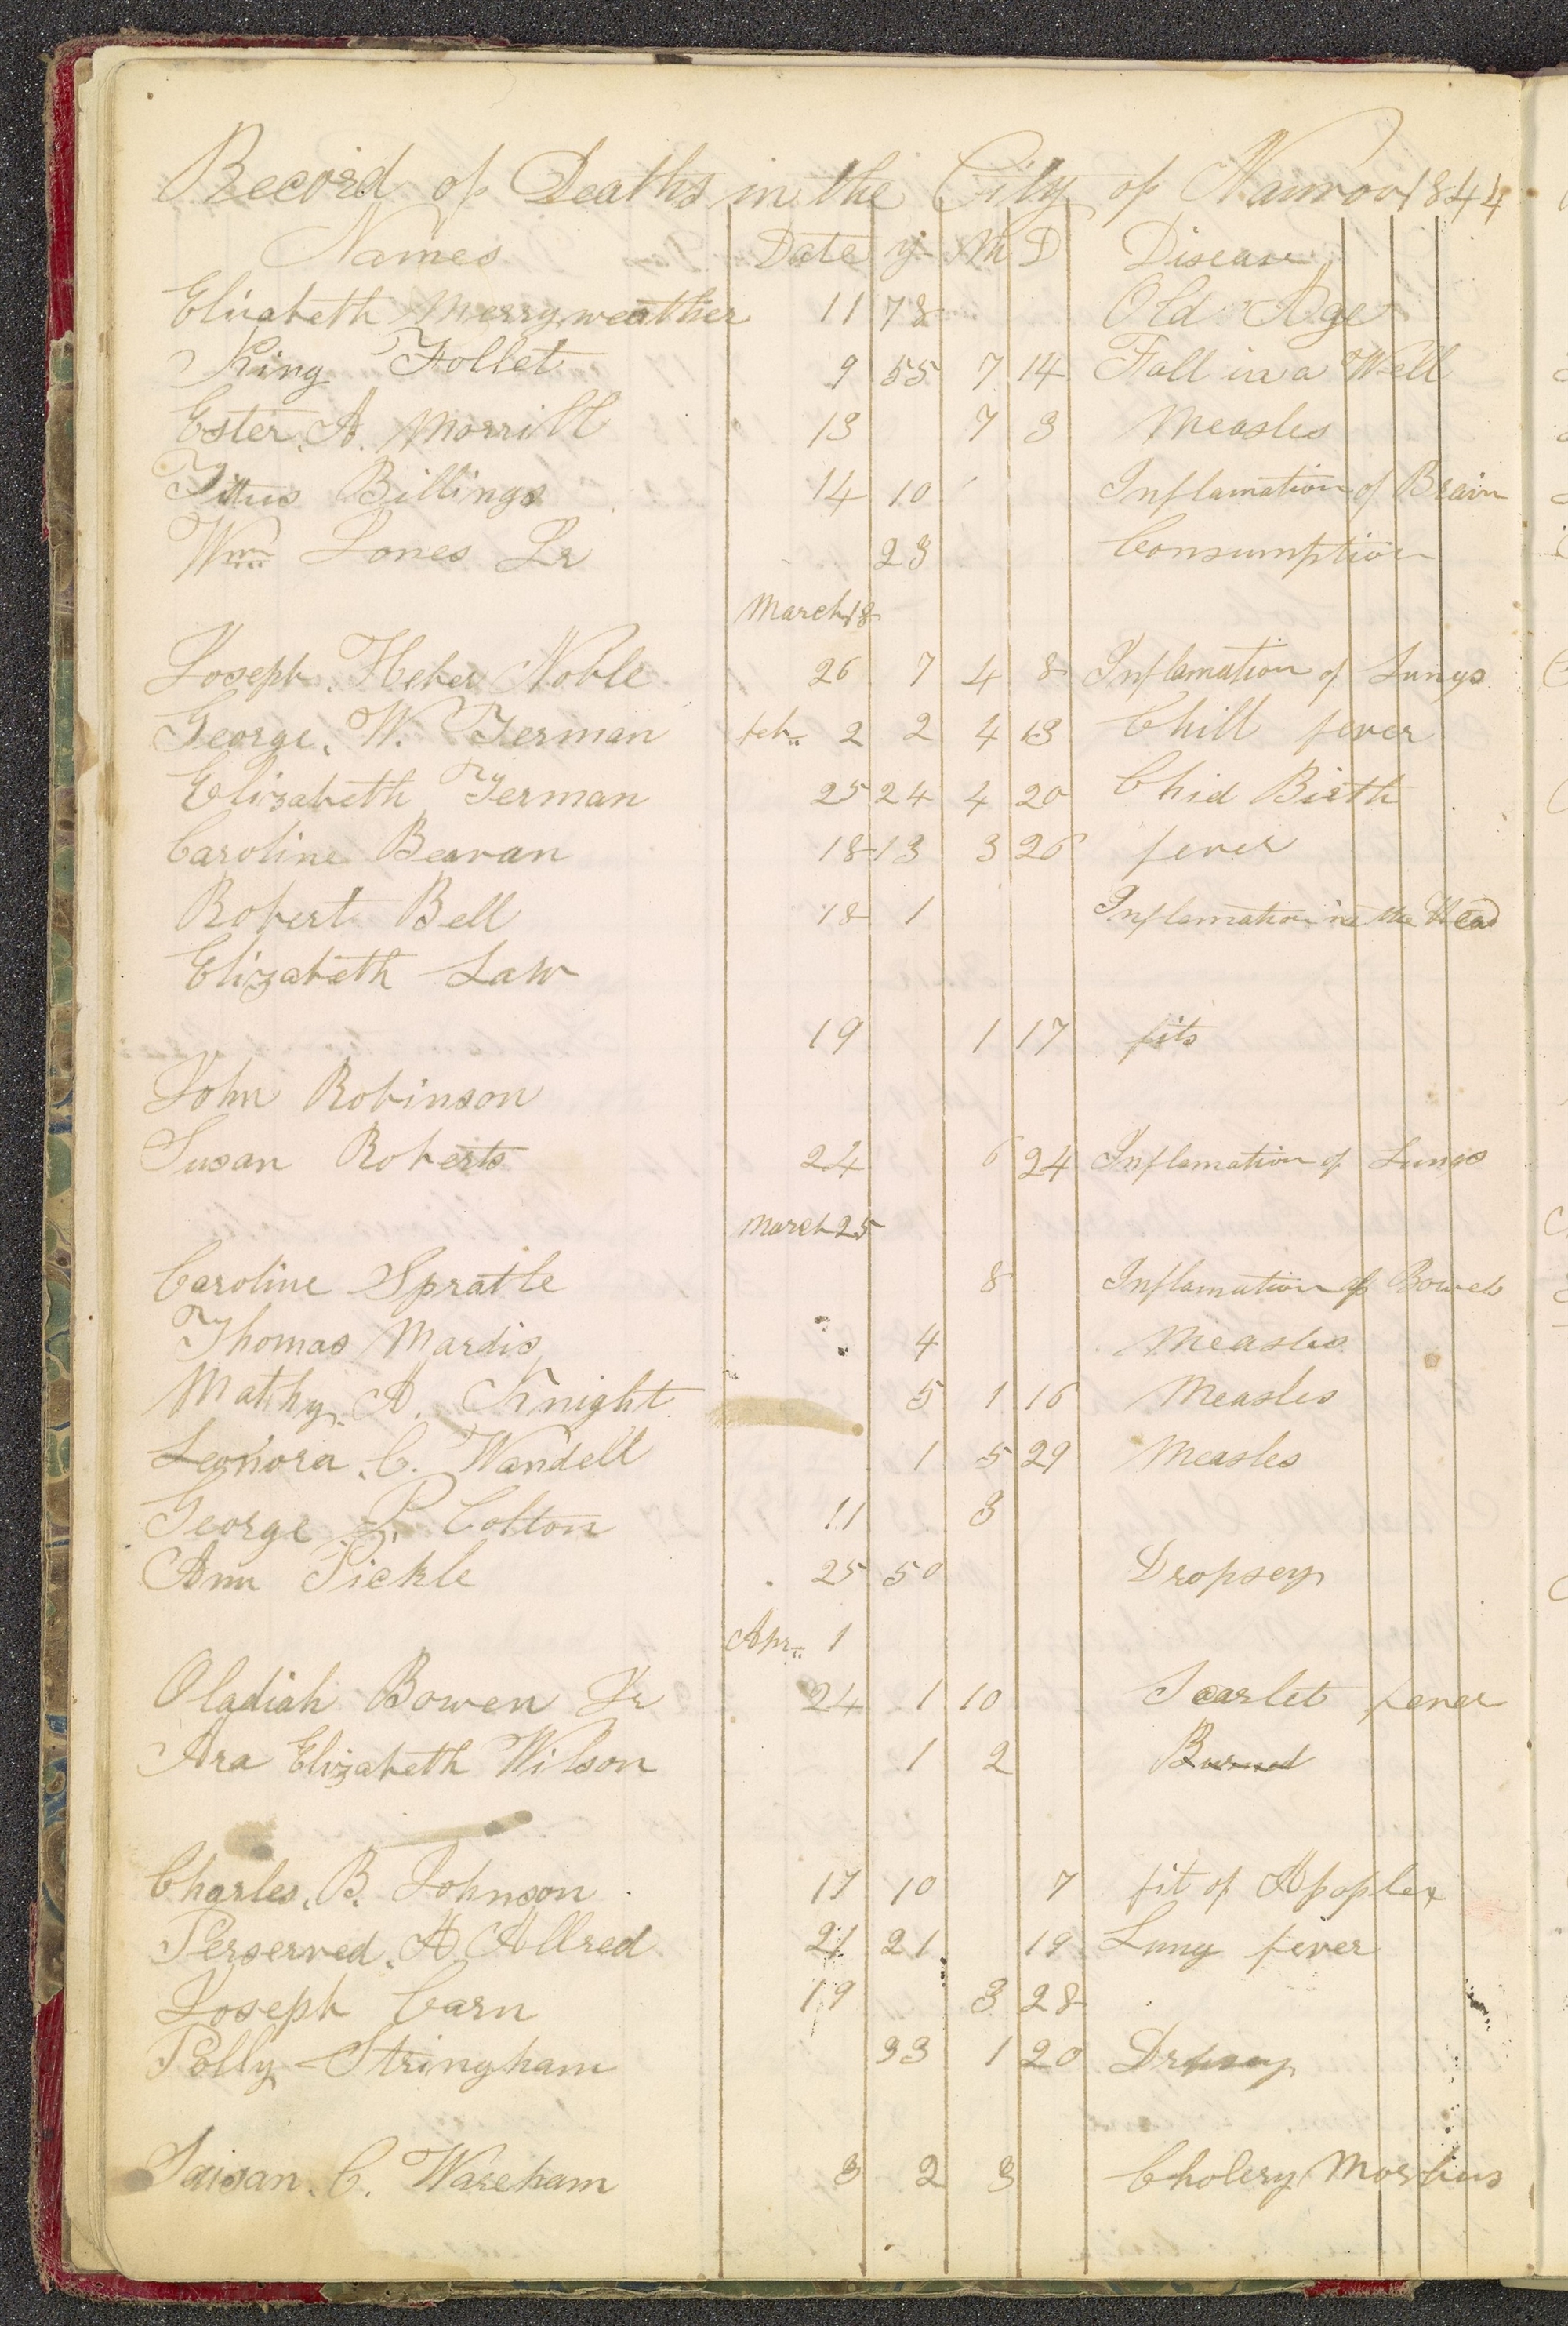 Record of Deaths in the City of Nauvoo 1844
Names Date y M D Disease
Elizabeth Merryweather 11 78 Old Age
King Follet 9 55 7 14 Fall in a Well
Ester A. Morrill 13 7 3 Measles
Titus Billings 14 10 Inflamation of Brain
Wm Jones Sr 23 Consumption
March 18
Joseph Heber Noble 26 7 4 8 Inflamation of Lungs
George. W. Terman feb 2 2 4 13 Chill fever
Elizabeth Terman 25 24 4 20 Chid Birth
Caroline Beavan 18 13 3 26 fever
Robert Bell 18 1 Inflamation in the Head
Elizabeth Law
19 1 17 fits
John Robinson
Susan Roberts 24 6 24 Inflamation of Lungs
March 25
Caroline Spratle 8 Inflamation of Bowels
Thomas Mardis 4 Measles
Mathy. A. Knight 5 1 16 Measles
Leonora. C. Wandell 1 5 29 Measles
George P. Colton 11 3
Ann Pickle 25 50 Dropsey
Apr 1
Oladiah Bowen Jr 24 1 10 Scarlet fever
Ara Elizabeth Wilson 1 2 Burned
Charles. B. Johnson 17 10 7 fit of Apoplex
Perserved. A Allred 21 21 19 Lung fever
Joseph Carn 19 3 28
Polly Stringham 33 1 20 Dropsy
C. Wareham 3 2 3 Cholery Morbus